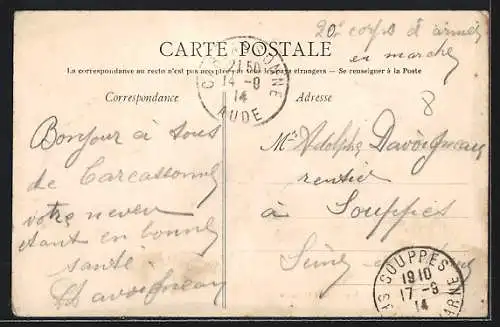 20e corps d'armée
en marche
CARTE POSTALE
La correspondance au recto n'est pas acceptée par tous les pays étrangers — Se renseigner à la Poste
Correspondance
Adresse
CARCASSONNE
21 50
14 - 9
14
AUDE
8
Bonjour à tous
de Carcassonne
votre neveu
étant en bonne
santé
Davoigneau
Mr Adolphe Davoigneau
rentier
à Souppes
Seine
SOUPPES
1910
17 - 9
14